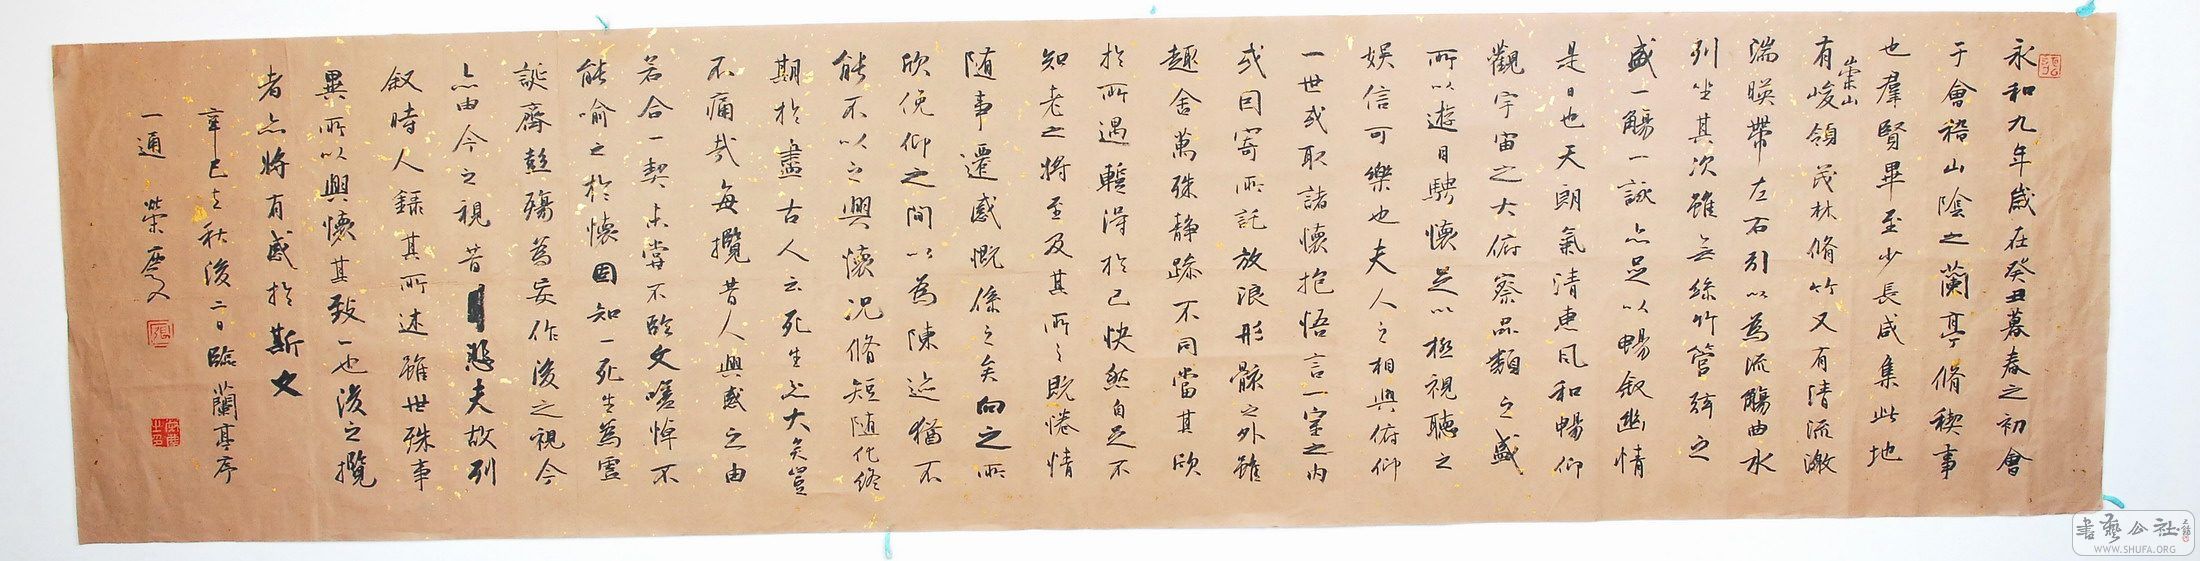 永和九年歲在癸丑暮春之初會
于會稽山陰之蘭亭脩稧事
也羣賢畢至少長咸集此地
有崇山峻領茂林脩竹又有清流激
湍暎帶左右引以為流觴曲水
列坐其次雖無絲竹管弦之
盛一觴一詠亦足以暢叙幽情
是日也天朗氣清惠風和暢仰
觀宇宙之大俯察品類之盛
所以遊目騁懷足以極視聽之
娛信可樂也夫人之相與俯仰
一世或取諸懷抱悟言一室之内
或因寄所託放浪形骸之外雖
趣舍萬殊静躁不同當其欣
於所遇暫得於己快然自足不
知老之將至及其所之既惓情
随事遷感慨係之矣向之所
欣俛仰之間以為陳迹猶不
能不以之興懷况脩短随化終
期於盡古人云死生亦大矣豈
不痛哉每攬昔人興感之由
若合一契未嘗不臨文嗟悼不
能喻之於懷固知一死生為虚
誕齊彭殤為妄作後之視今
亦由今之視昔悲夫故列
叙時人録其所述雖世殊事
異所以興懷其致一也後之攬
者亦將有感於斯文
辛巳立秋後二日臨蘭亭序
一通
書藝公社
WWW.SHUFA.ORG